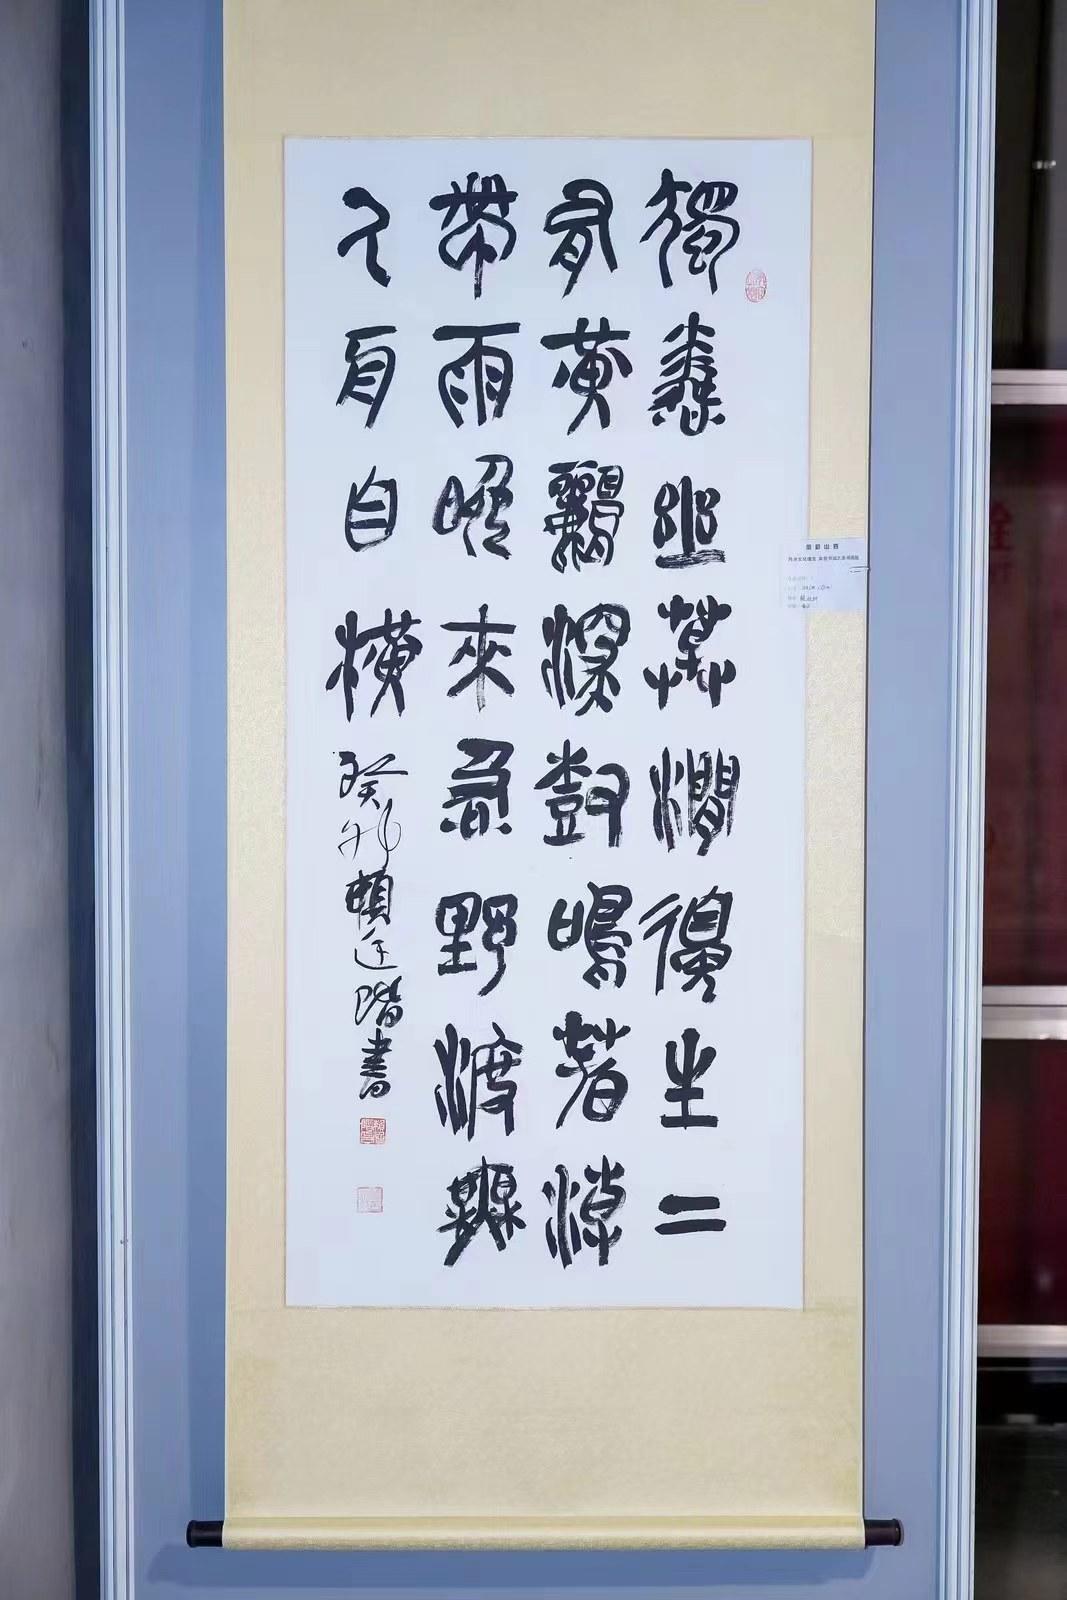 獨憐幽草澗邊生上
有黃鸝深樹鳴春潮
帶雨晚來急野渡無
人舟自橫 癸卯 書